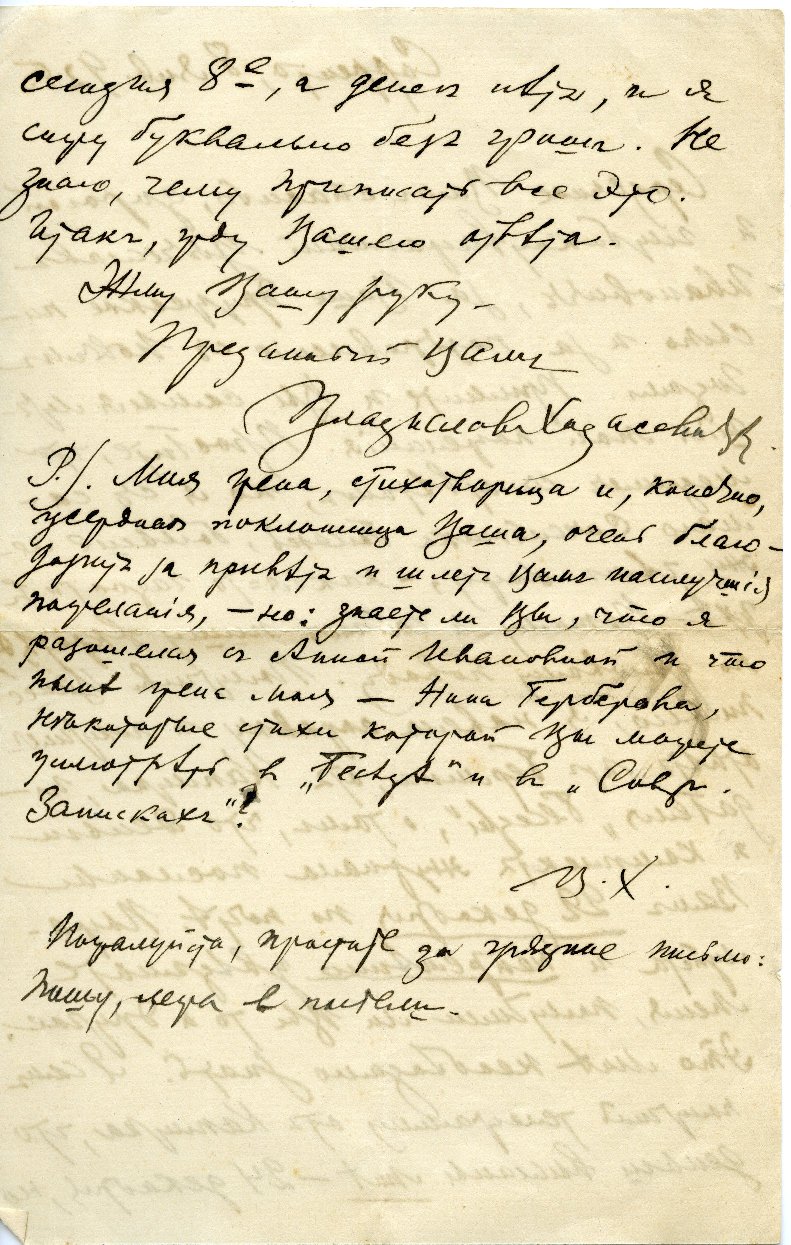 сегодня 8-е, а денег нѣтъ, и я
сижу буквально безъ гроша. Не
знаю, чему приписать все это.
Итакъ, жду Вашего отвѣта.
Жму Вашу руку.
Преданный Вамъ
Владиславъ Ходасевичъ.
P.S. Моя жена, стихотворица и, конечно,
усердная поклонница Ваша, очень благо-
даритъ за привѣтъ и шлетъ Вамъ наилучшія
пожеланія, — но: знаете ли Вы, что я
разошелся съ Анной Ивановной и что
нынѣ жена моя — Нина Берберова,
нѣкоторые стихи которой Вы можете
усмотрѣть въ „Бесѣдѣ“ и въ „Совр.
Запискахъ“?
В. Х.
Пожалуйста, простите за грязное письмо:
пишу, лежа в постели.